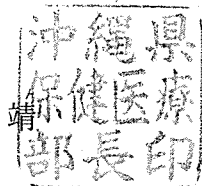 沖縄県
保健医療
部長印
靖